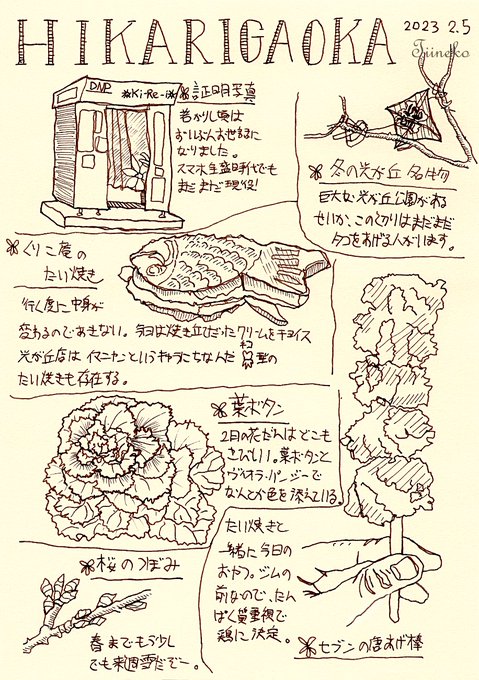 HIKARIGAOKA
2023 2.5
Tiineko
DNP
Ki-Re-i
証明写真
若かりし頃は
ずいぶんお世話に
なりました。
スマホ全盛時代でも
まだまだ現役!
冬の光が丘名物
巨大な光が丘公園がある
せいか、この辺りはまだまだ
タコをあげる人がいます。
くりこ庵の
たい焼き
行く度に中身が
変わるのであきない。今日は焼き立てだったクリームをチョイス
光が丘店は というキャラにちなんだ ネコ型の
たい焼きも存在する。
葉ボタン
2月の花だんはどこも
さびしい。葉ボタンと
ヴィオラ・パンジーで
なんとか色を添えている。
桜のつぼみ
春までもう少し
でも来週雪だで〜。
たい焼きと
一緒に今日の
おやつ。ジムの
前なので、たん
ぱく質重視で
鶏に決定。
セブンの唐あげ棒